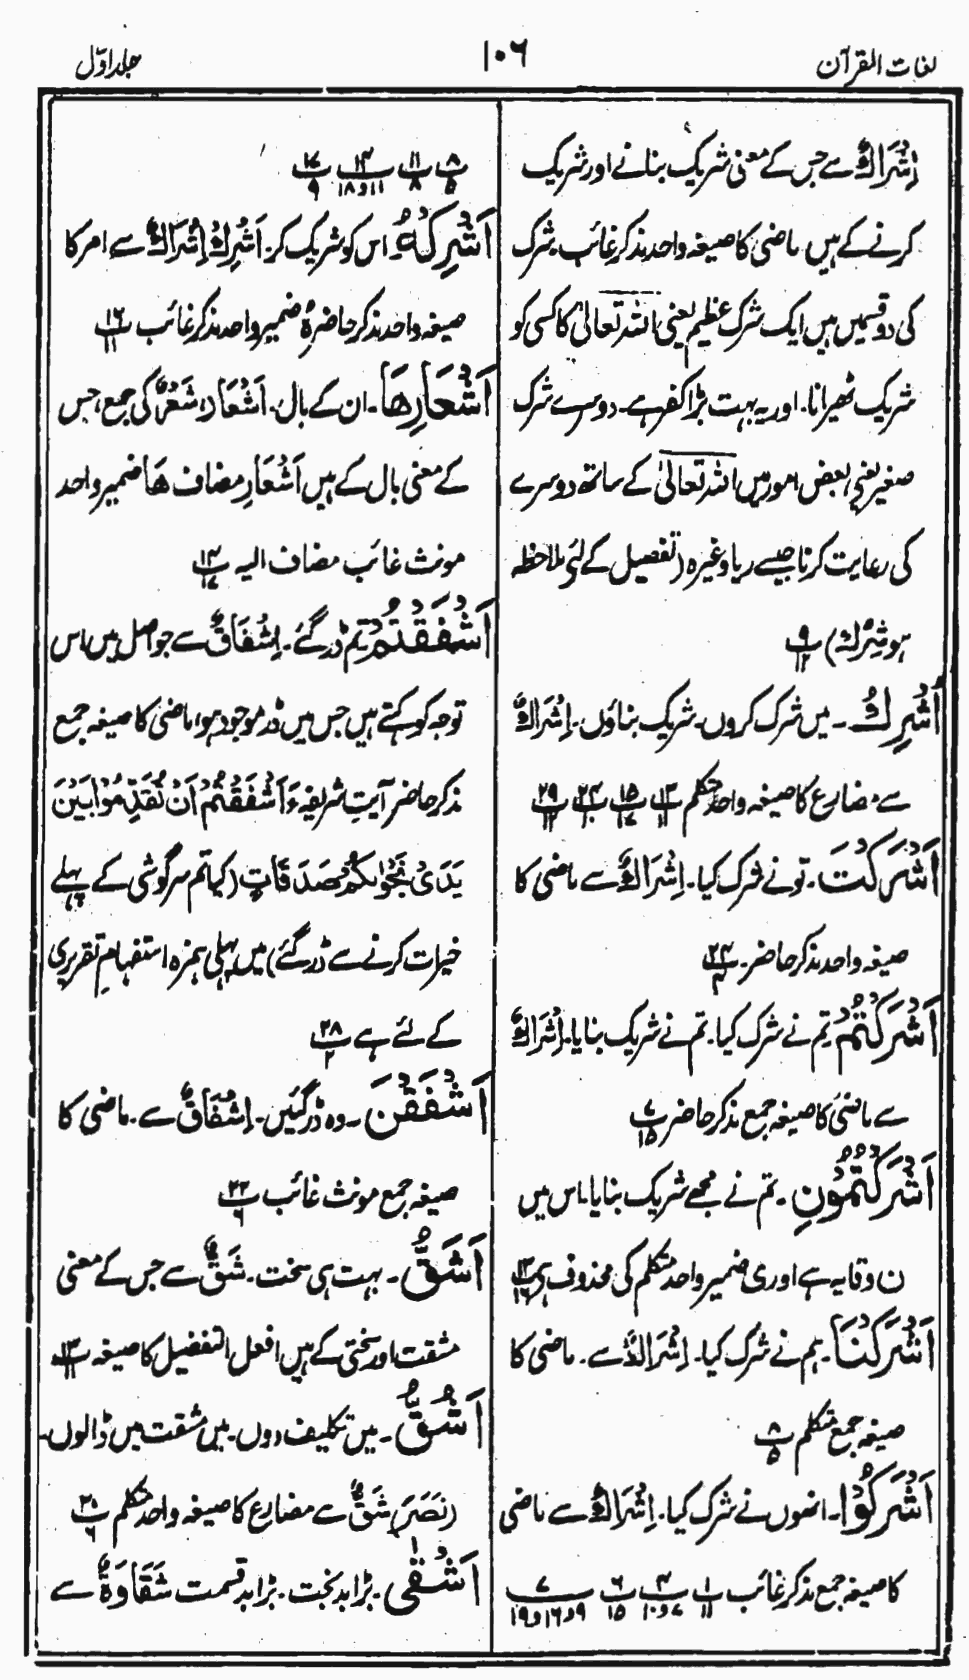 لغات القرآن
۱۰۶
جلد اوّل
اِشْرَاكٌ سے جس کے معنی شریک بنانے اور شریک
کرنے کے ہیں ماضی کا صیغہ واحد مذکر غائب۔ شرک
کی دو قسمیں ہیں ایک شرک عظیم یعنی اللہ تعالیٰ کا کسی کو
شریک ٹھیرانا۔ اور یہ بہت بڑا کفر ہے۔ دوسرے شرک
صغیر یعنی بعض امور میں اللہ تعالیٰ کے ساتھ دوسرے
کی رعایت کرنا جیسے ریا وغیرہ (تفصیل کے لئے ملاحظہ
ہو شِرْكٌ) ۹/۱۲
اُشْرِكُ۔ میں شرک کروں۔ شریک بناؤں۔ اِشْرَاكٌ
سے مضارع کا صیغہ واحد متکلم
اَشْرَكْتَ۔ تو نے شرک کیا۔ اِشْرَاكٌ سے ماضی کا
صیغہ واحد مذکر حاضر۔ ۲۴/۴
اَشْرَكْتُمْ تم نے شرک کیا۔ تم نے شریک بنایا۔ اِشْرَاكٌ
سے ماضی کا صیغہ جمع مذکر حاضر ۷/۱۵
اَشْرَكْتُمُوْنِ۔ تم نے مجھے شریک بنایا۔ اس میں
ن وقایہ ہے اور ی ضمیر واحد متکلم کی محذوف ہی ۱۳/۱۶
اَشْرَكْنَا۔ ہم نے شرک کیا۔ اِشْرَاكٌ سے۔ ماضی کا
صیغہ جمع متکلم ۸/۵
اَشْرَكُوْا۔ انھوں نے شرک کیا۔ اِشْرَاكٌ سے ماضی
کا صیغہ جمع مذکر غائب ۱/۱۱ ۴/۷و۱۰ ۶/۱۵ ۷/۹و۱۶و۱۹
۸/۵ ۱۱/۸ ۱۴/۱۱و۱۸ ۱۷/۹
اَشْرِكْهُ اس کو شریک کر۔ اَشْرِكْ اِشْرَاكٌ سے امر کا
صیغہ واحد مذکر حاضر ہٗ ضمیر واحد مذکر غائب ۱۶/۱۱
اَشْعَارِهَا۔ ان کے بال۔ اَشْعَار، شَعْرٌ کی جمع، جس
کے معنی بال کے ہیں اَشْعَارِ مضاف هَا ضمیر واحد
مونث غائب مضاف الیہ ۱۴/۱۷
اَشْفَقْتُمْ تم ڈر گئے۔ اِشْفَاقٌ سے جو اصل میں اس
توجہ کو کہتے ہیں جس میں ڈر موجود ہو، ماضی کا صیغہ جمع
مذکر حاضر آیتِ شریفہ ءَاَشْفَقْتُمْ اَنْ تُقَدِّمُوْا بَيْنَ
يَدَىْ نَجْوٰىكُمْ صَدَقَاتٍ (کیا تم سرگوشی کے پہلے
خیرات کرنے سے ڈر گئے) میں پہلی ہمزہ استفہامِ تقریری
کے لئے ہے ۲۸/۲
اَشْفَقْنَ۔ وہ ڈر گئیں۔ اِشْفَاقٌ سے۔ ماضی کا
صیغہ جمع مونث غائب ۲۲/۶
اَشَقُّ۔ بہت ہی سخت۔ شَقٌّ سے جس کے معنی
مشقت اور سختی کے ہیں افعل التفضیل کا صیغہ ۱۳/۱۱
اَشُقُّ۔ میں تکلیف دوں۔ میں مشقت میں ڈالوں۔
(نَصَرَ) شَقٌّ سے مضارع کا صیغہ واحد متکلم ۲۰/۶
اَشْقٰى۔ بڑا بدبخت۔ بڑا بد قسمت شَقَاوَةٌ سے